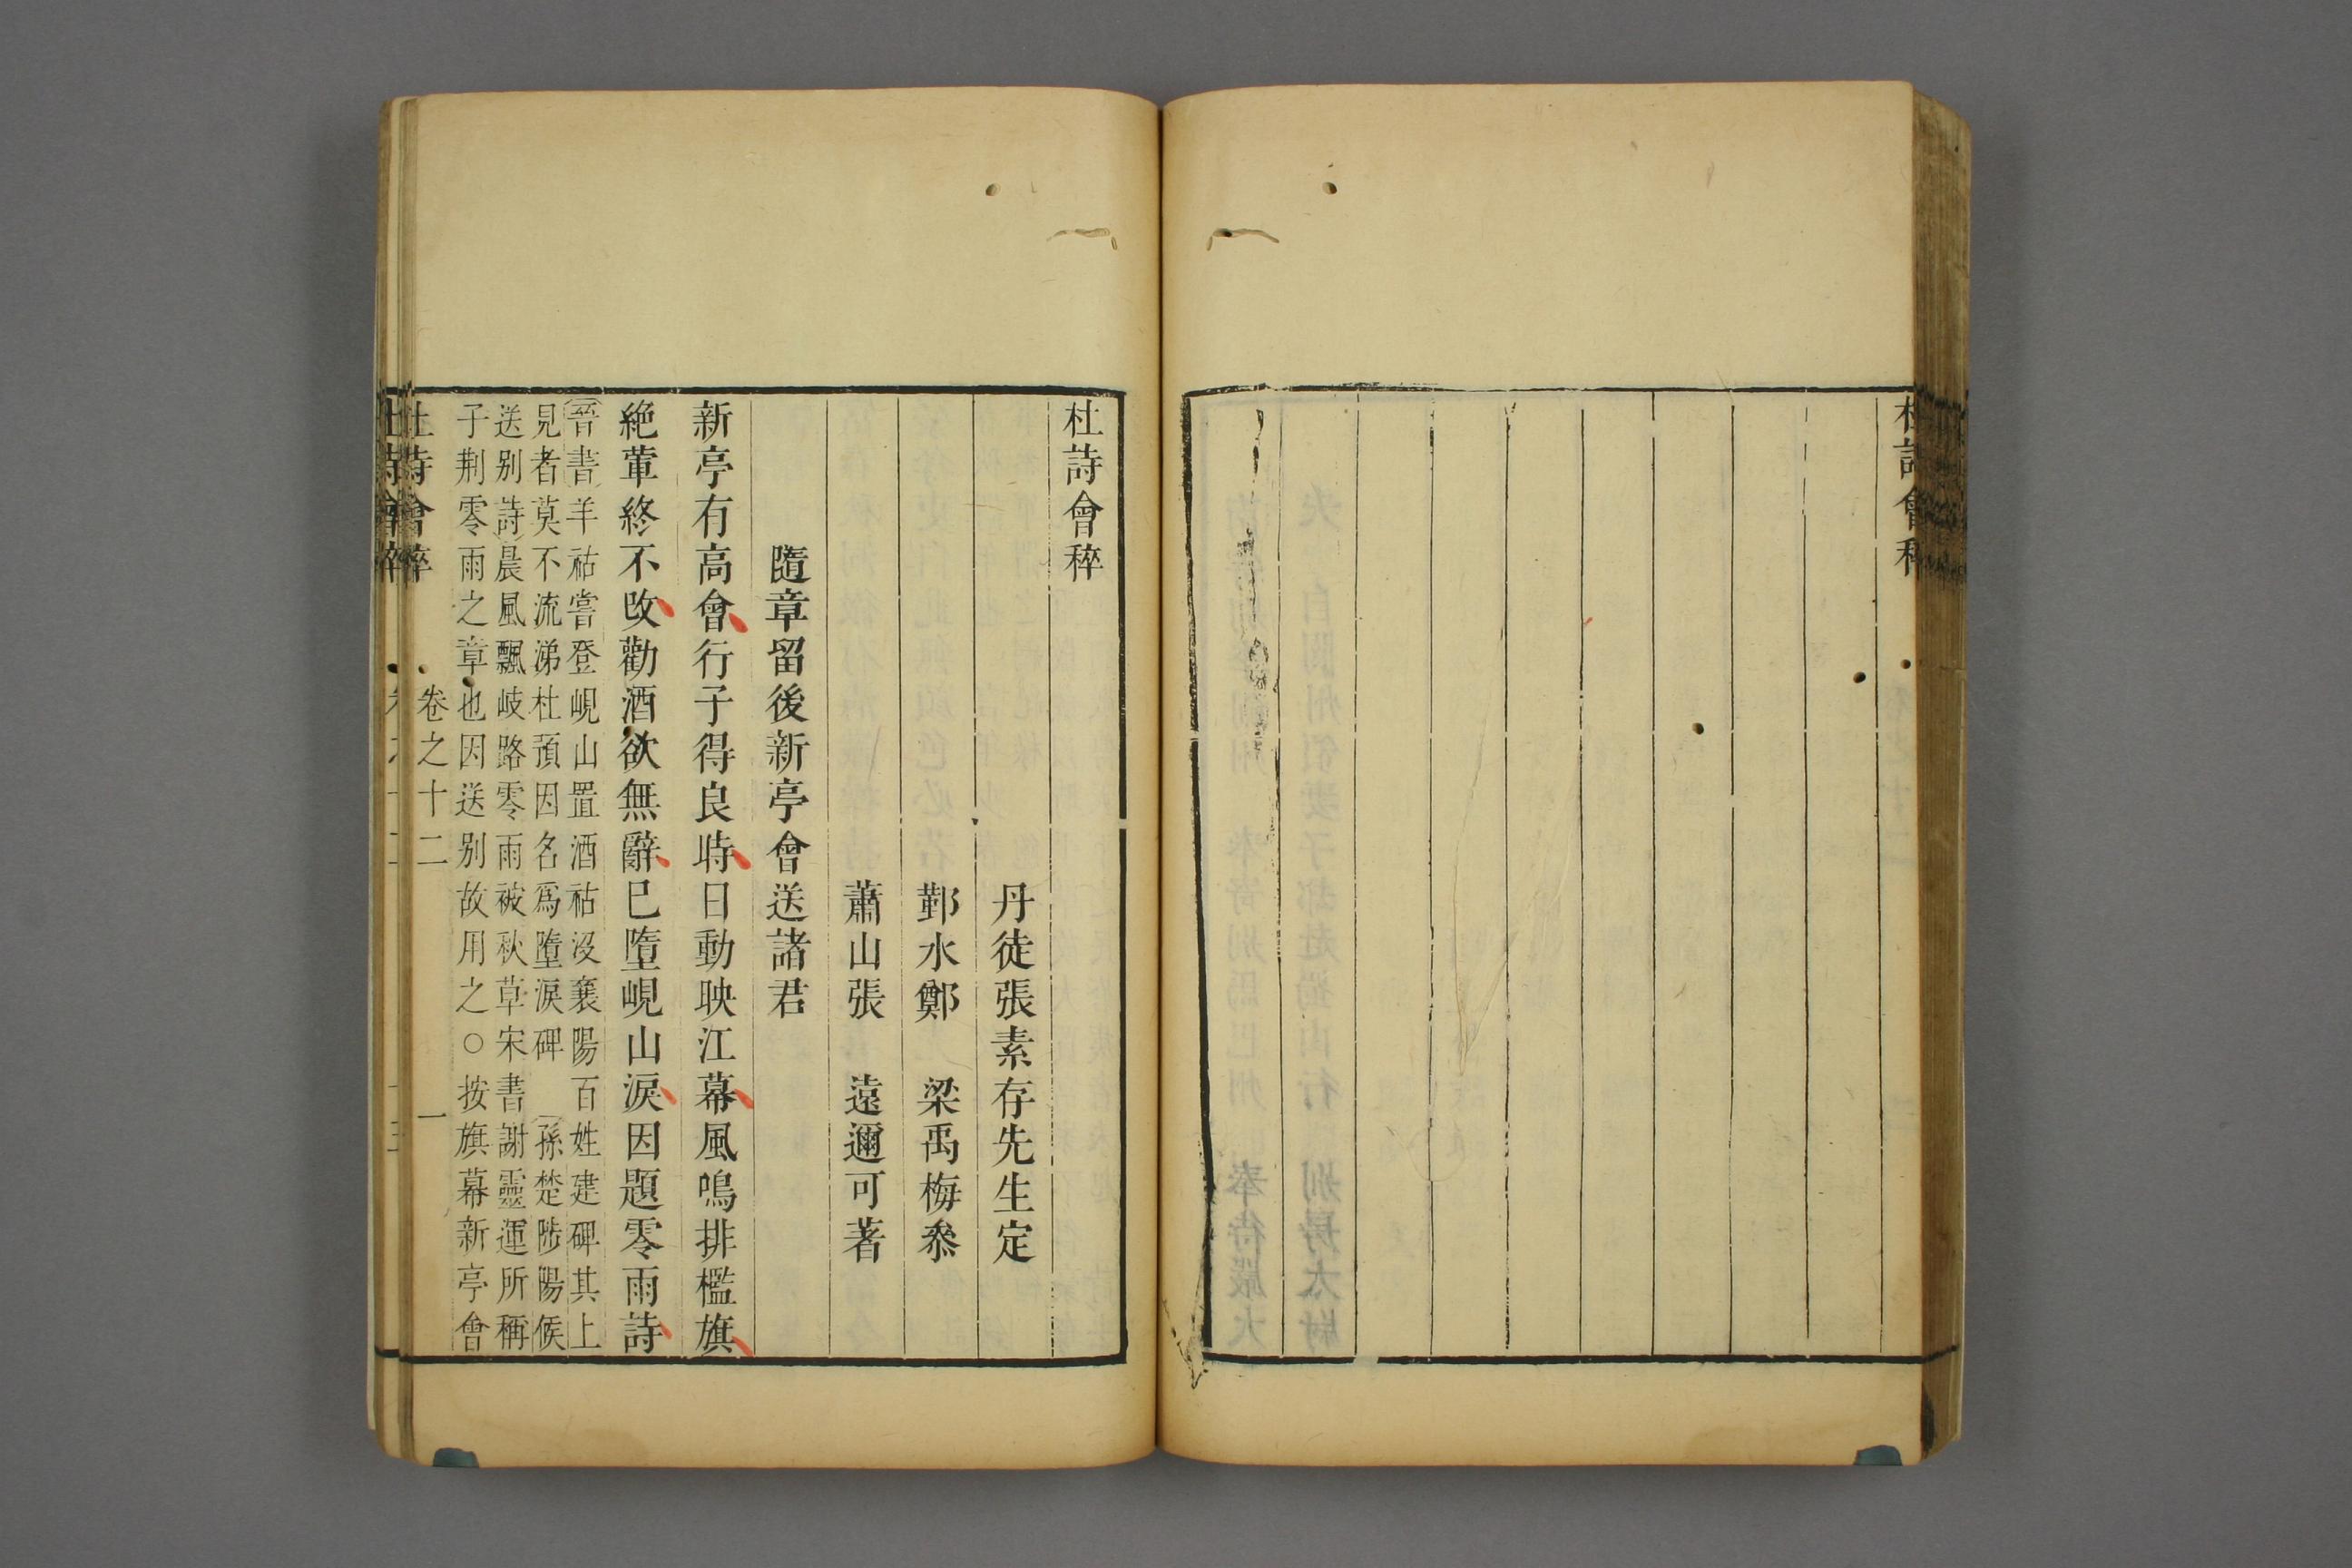 杜詩會稡
丹徒張素存先生定
鄞水鄭　梁禹梅叅
蕭山張　遠邇可著
隨章留後新亭會送諸君
新亭有高會行子得良時日動映江幕風鳴排檻旗
絶葷終不改勸酒欲無辭巳墮峴山淚因題零雨詩
晉書羊祜嘗登峴山置酒祜没襄陽百姓建碑其上
見者莫不流涕杜預因名爲墮淚碑　孫楚陟陽候
送别詩晨風飄岐路零雨被秋草宋書謝靈運所稱
子荆零雨之章也因送别故用之○按旗幕新亭會
杜詩會稡　卷之十二　一